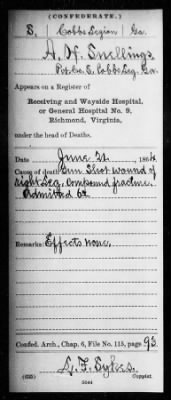 (CONFEDERATE.)
S. Cobbs Legion Ga.
A. W. Snellings
Pvt. Co. S. Cobbs Leg. Ga.
Appears on a Register of
Receiving and Wayside Hospital,
or General Hospital No. 9,
Richmond, Virginia,
under the head of Deaths.
Date June 21, 1864
Cause of death Gun Shot wound of
right Leg. Compound fracture.
Admitted 6/2
Remarks: Effects none.
Confed. Arch., Chap. 6, File No. 115, page 93
L. F. Sykes.
(635) Copyist